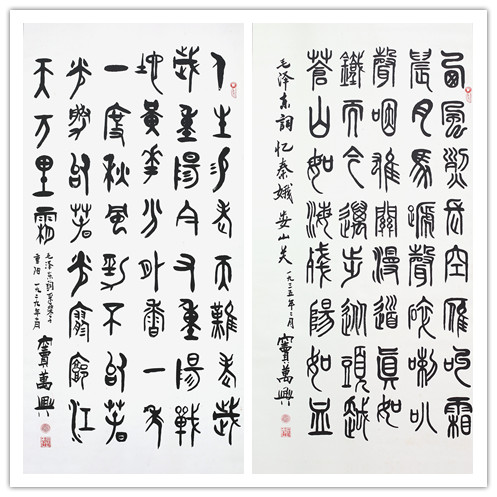 西風烈長空雁叫霜
晨月馬蹄聲碎喇叭
聲咽雄關漫道真如
鐵而今邁步從頭越
蒼山如海殘陽如血
毛泽东詞忆秦娥娄山关 一九三五年二月 竇萬興
人生易老天難老歲
歲重陽今又重陽戰
地黃花分外香一年
一度秋風勁不似春
光勝似春光寥廓江
天万里霜
毛泽东詞采桑子
重阳 一九二九年十月
竇萬興